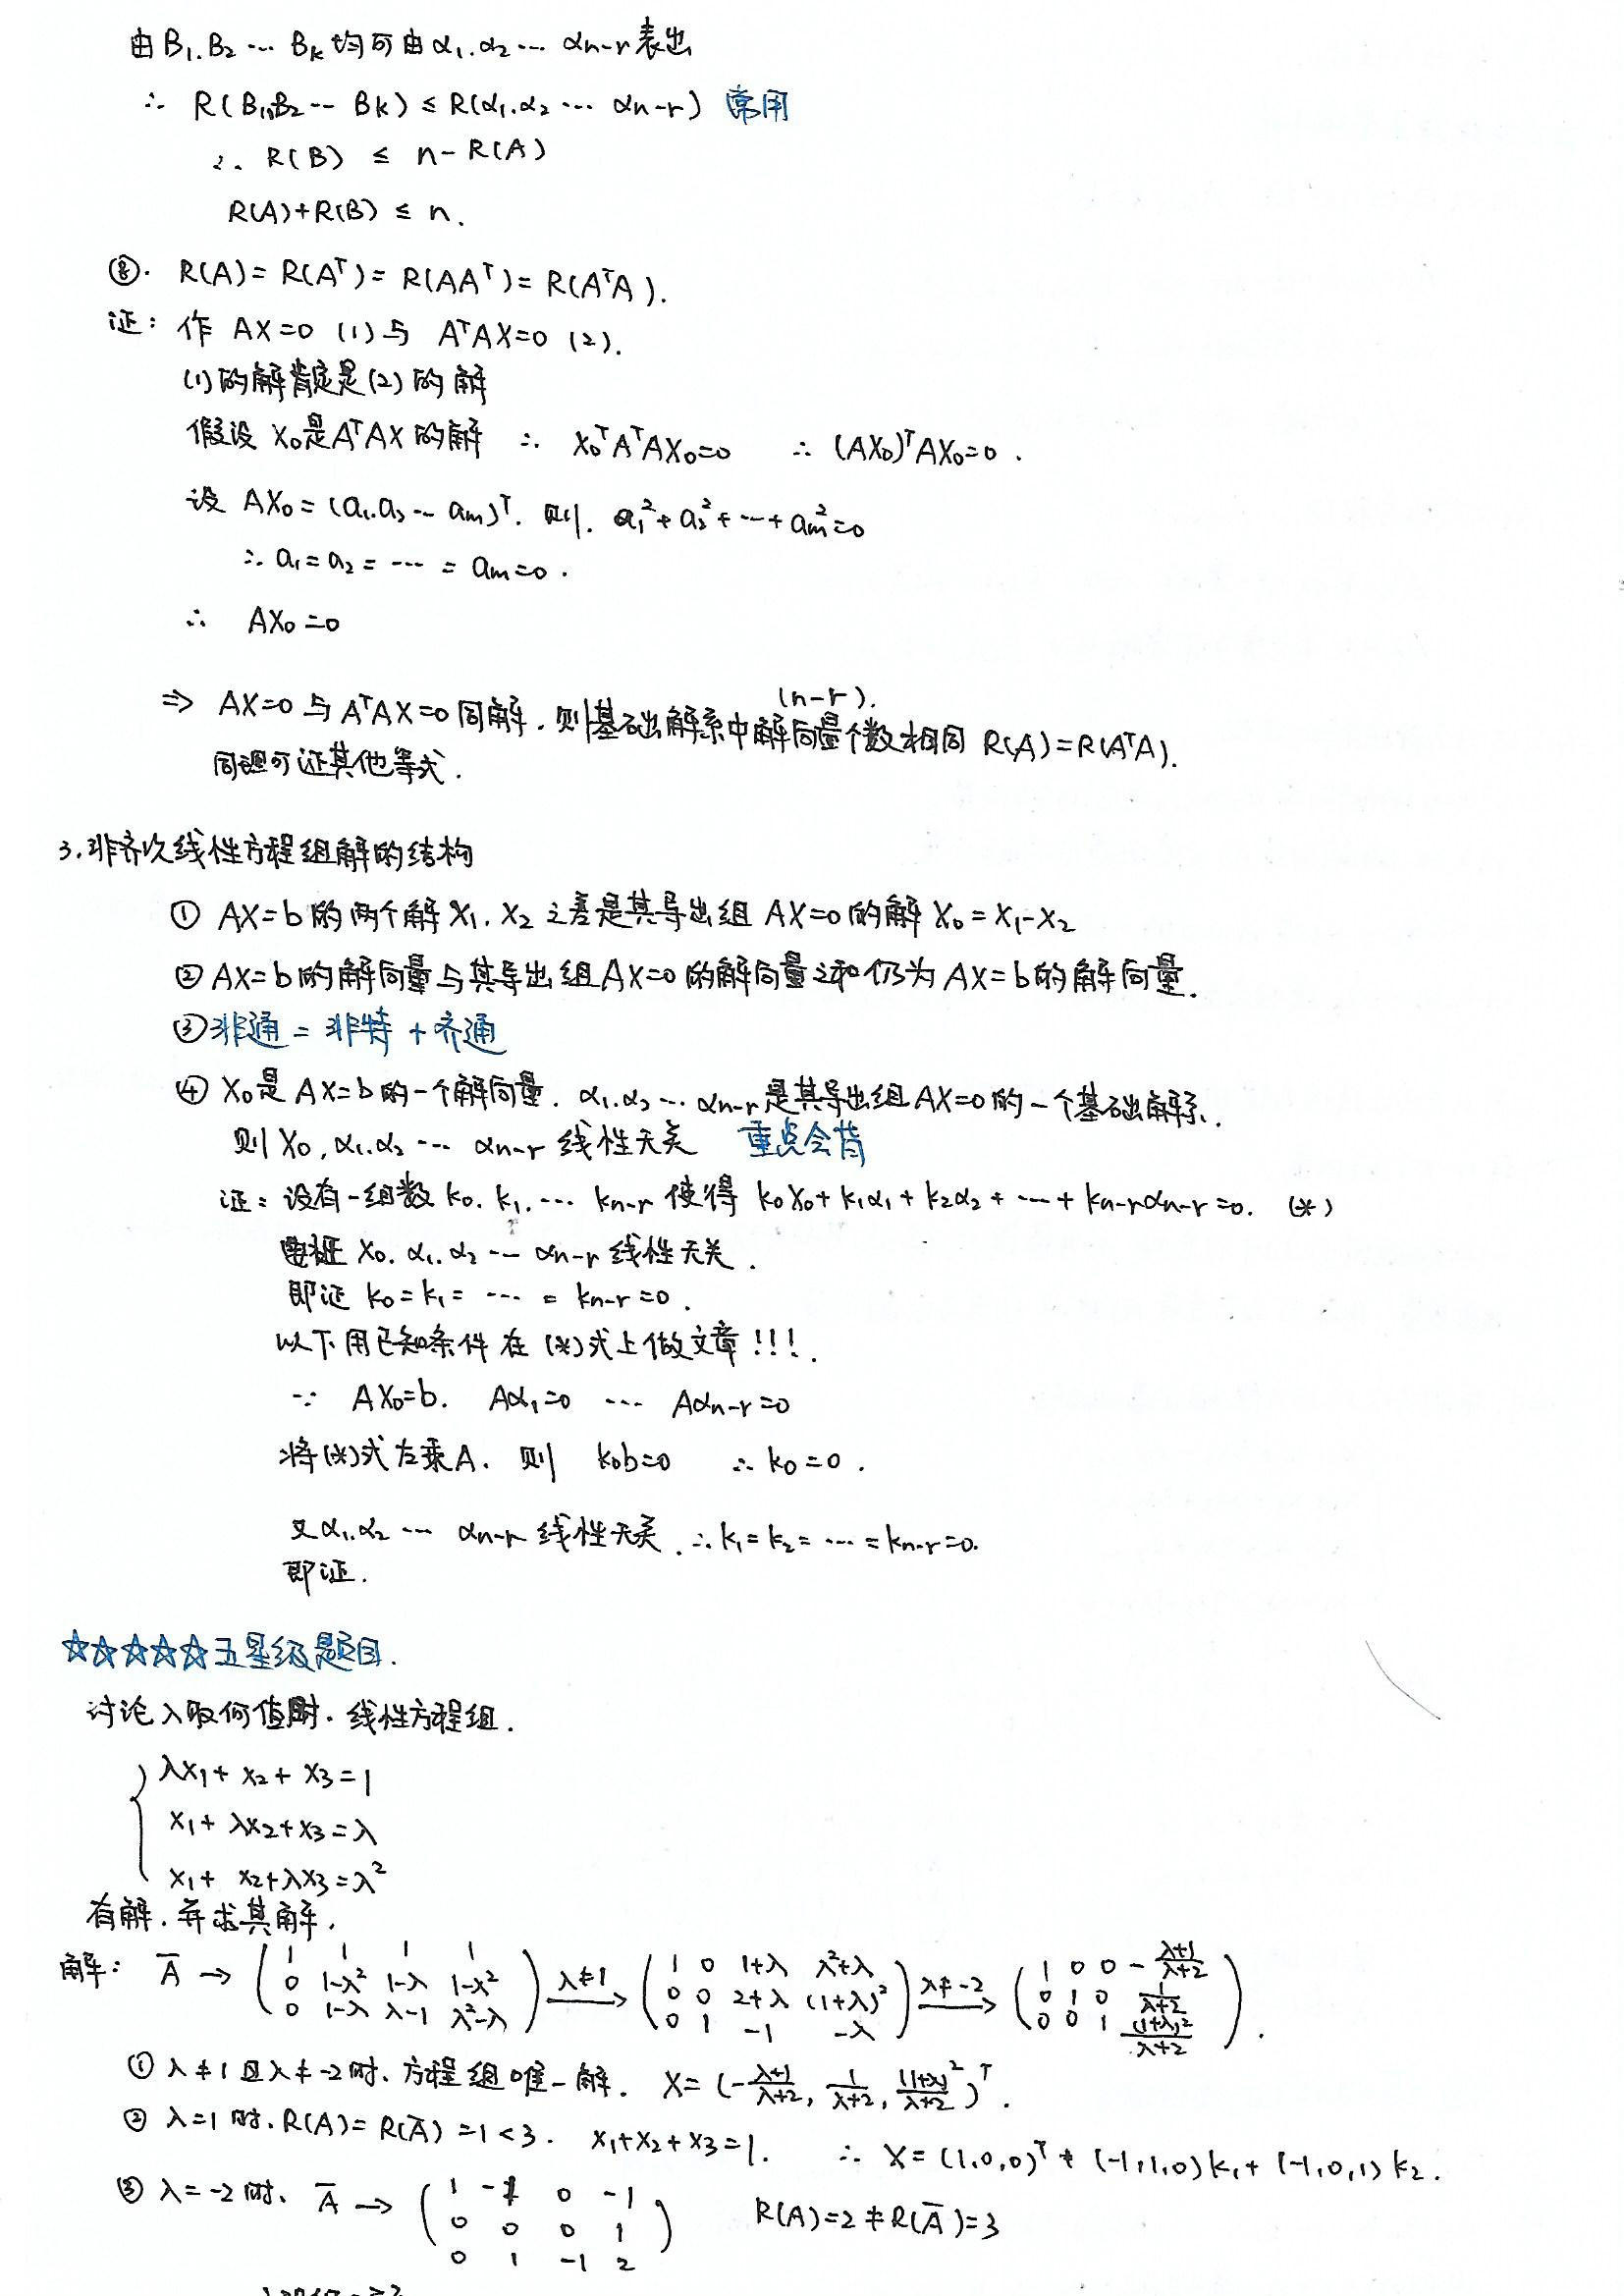 由B₁.B₂ … Bₖ均可由α₁.α₂… αn-r表出
∴ R(B₁,B₂ … Bk) ≤ R(α₁.α₂ … αn-r) 常用
∴ R(B) ≤ n-R(A)
R(A)+R(B) ≤ n.
⑧. R(A)= R(Aᵀ)= R(AAᵀ)= R(AᵀA).
证: 作 AX=0 (1)与 AᵀAX=0 (2).
(1)的解肯定是(2)的解
假设 X₀是AᵀAX的解 ∴ X₀ᵀAᵀAX₀=0 ∴ (AX₀)ᵀAX₀=0.
设 AX₀=(a₁.a₂ … am)ᵀ. 则. a₁²+a₂²+…+am²=0
∴ a₁=a₂=…=am=0.
∴ AX₀=0
(n-r).
⇒ AX=0与AᵀAX=0同解.则基础解系中解向量个数相同 R(A)=R(AᵀA).
同理可证其他等式.
3.非齐次线性方程组解的结构
① AX=b的两个解X₁.X₂之差是其导出组AX=0的解X₀=X₁-X₂
② AX=b的解向量与其导出组AX=0的解向量之和仍为AX=b的解向量.
③非通=非特+齐通
④ X₀是AX=b的一个解向量. α₁.α₂…αn-r是其导出组AX=0的一个基础解系.
则X₀,α₁.α₂ … αn-r 线性无关 重点会背
证: 设有一组数k₀.k₁.… kn-r 使得 k₀X₀+k₁α₁+k₂α₂+…+kn-rαn-r=0. (*)
要证 X₀.α₁.α₂ … αn-r 线性无关.
即证 k₀=k₁=…=kn-r=0.
以下用已知条件在(*)式上做文章!!!.
∵ AX₀=b. Aα₁=0 … Aαn-r=0
将(*)式左乘A. 则 k₀b=0 ∴ k₀=0.
又α₁.α₂ … αn-r 线性无关.∴k₁=k₂=…=kn-r=0.
即证.
☆☆☆☆☆五星级题目.
讨论λ取何值时.线性方程组.
λx₁+x₂+x₃=1
x₁+λx₂+x₃=λ
x₁+x₂+λx₃=λ²
有解.并求其解.
解: A̅ → (1 1 1 1; 0 1-λ² 1-λ 1-λ²; 0 1-λ λ-1 λ²-λ) λ≠1→ (1 0 1+λ λ²+λ; 0 0 2+λ (1+λ)²; 0 1 -1 -λ) λ≠-2→ (1 0 0 -(λ+1)/(λ+2); 0 1 0 1/(λ+2); 0 0 1 (1+λ)²/(λ+2)).
① λ≠1且λ≠-2时.方程组唯一解. X=(-(λ+1)/(λ+2), 1/(λ+2), (1+λ)²/(λ+2))ᵀ.
② λ=1时.R(A)=R(A̅)=1<3. x₁+x₂+x₃=1. ∴ X=(1,0,0)ᵀ+(-1,1,0)k₁+(-1,0,1)k₂.
③ λ=-2时. A̅ → (1 -1 0 -1; 0 0 0 1; 0 1 -1 2) R(A)=2≠R(A̅)=3